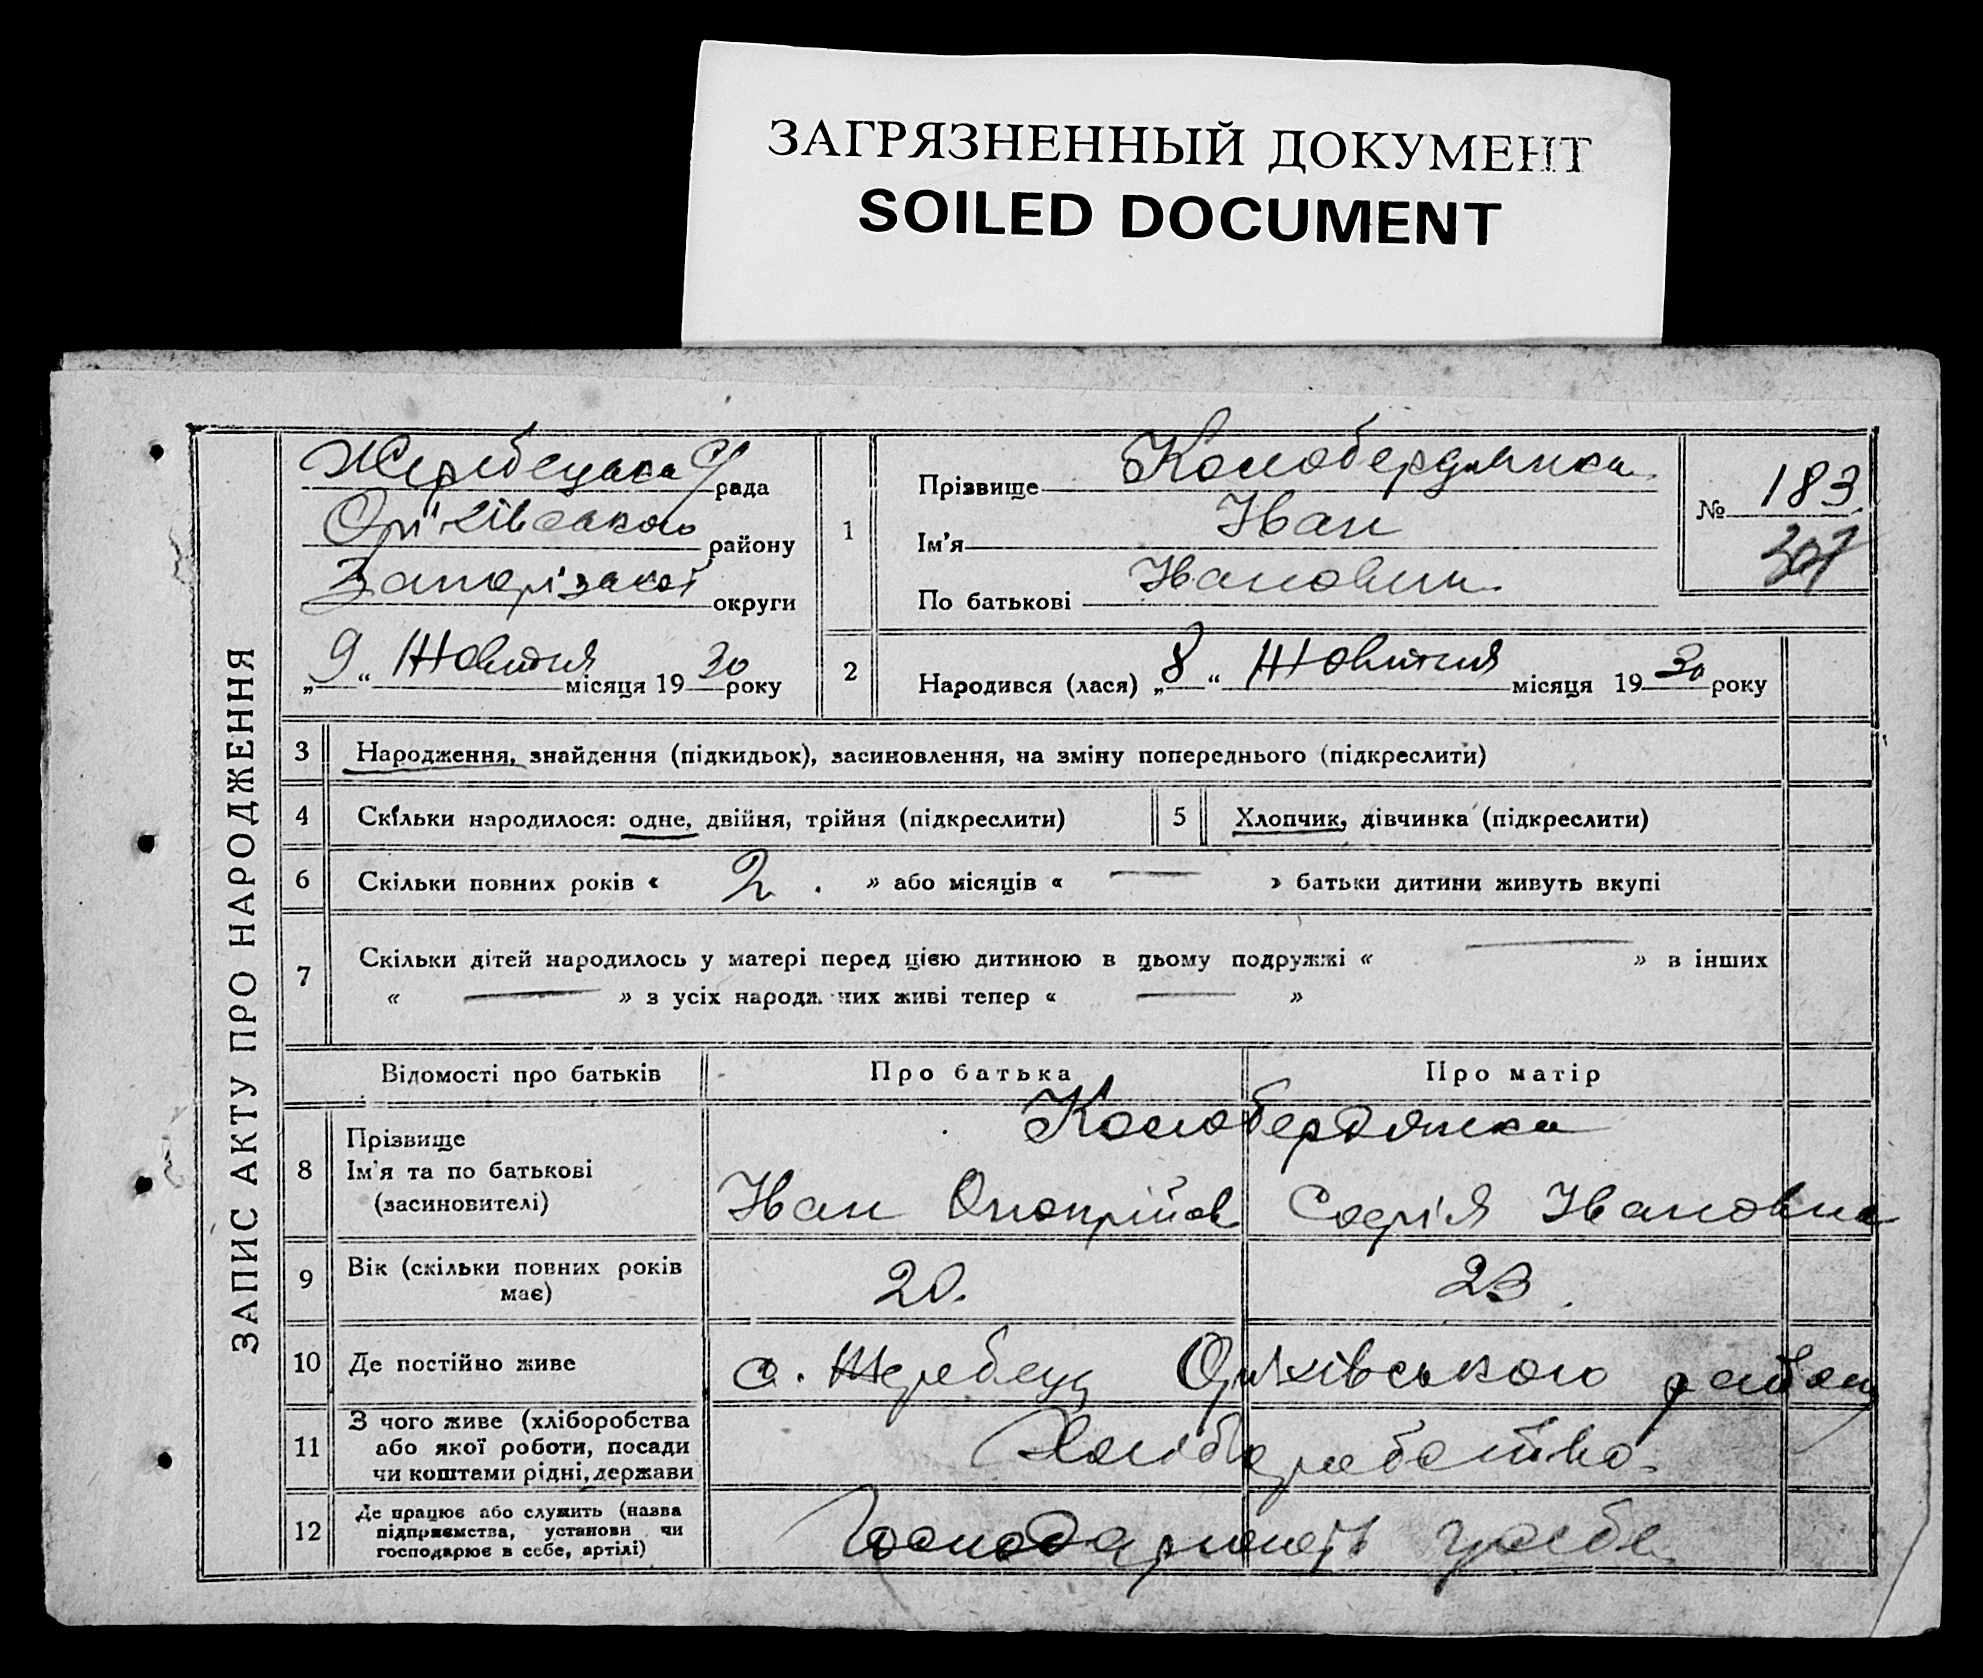 ЗАГРЯЗНЕННЫЙ ДОКУМЕНТ
SOILED DOCUMENT
ЗАПИС АКТУ ПРО НАРОДЖЕННЯ
Жеребецька с/рада
Оріхівського району
Запорізької округи
„9“ Жовтня місяця 1930 року
1
Прізвище Колобердянка
Ім'я Іван
По батькові Іванович
№ 183
2 Народився (лася) „8“ Жовтня місяця 1930 року
3 Народження, знайдення (підкидьок), засиновлення, на зміну попереднього (підкреслити)
4 Скільки народилося: одне, двійня, трійня (підкреслити) 5 Хлопчик, дівчинка (підкреслити)
6 Скільки повних років « 2. » або місяців « — » батьки дитини живуть вкупі
7 Скільки дітей народилось у матері перед цією дитиною в цьому подружжі « — » в інших
« — » з усіх народж них живі тепер « — »
Відомості про батьків Про батька Про матір
8 Прізвище Колобердянка
Ім'я та по батькові
(засиновителі) Іван Онопрійов Софія Івановна
9 Вік (скільки повних років
має) 20. 23.
10 Де постійно живе с. Жеребец Оріхівського району
11 З чого живе (хліборобства
або якої роботи, посади
чи коштами рідні, держави Хліборобство.
12 Де працює або служить (назва
підприємства, установи чи
господарює в себе, артілі) Господарюють у себе